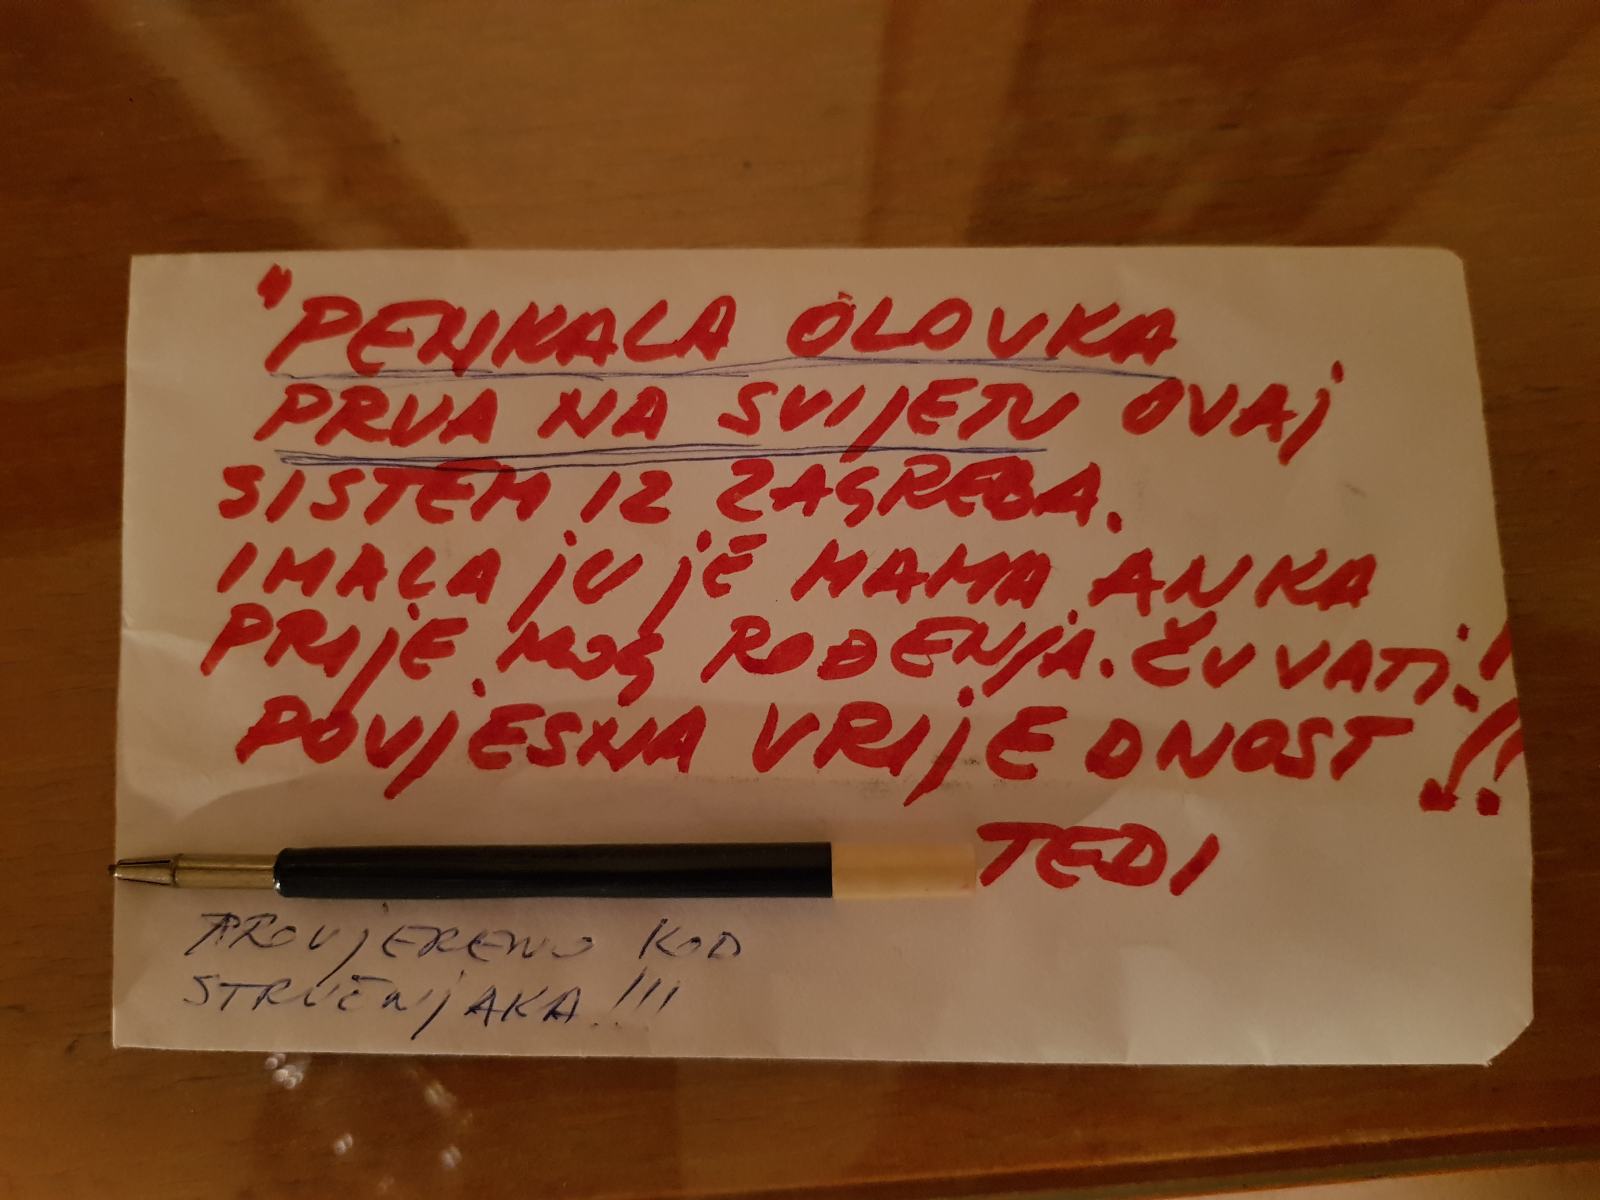 "PENKALA OLOVKA
PRVA NA SVIJETU OVAJ
SISTEM IZ ZAGREBA.
IMALA JU JE MAMA ANKA
PRIJE MOG ROĐENJA. ČUVATI!!
POVJESNA VRIJEDNOST!!
TEDI
PROVJERENO KOD
STRUČNJAKA!!!